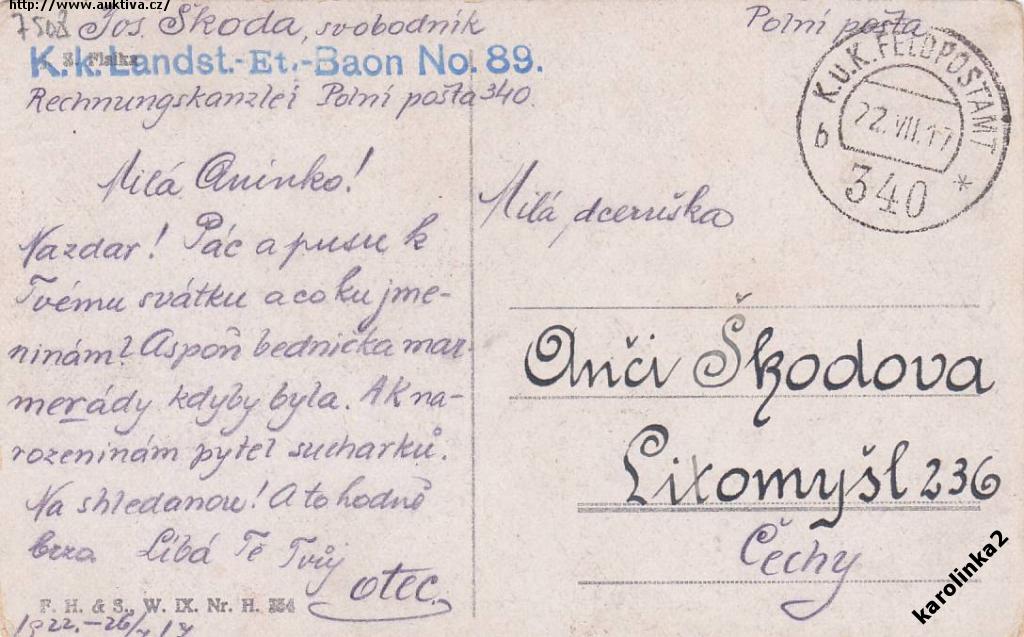 http://www.auktiva.cz/
7508 Jos. Škoda, svobodník
K. k. Landst.-Et.-Baon No. 89.
Rechnungskanzlei Polní pošta 340.
Milá Aninko!
Nazdar! Pác a pusu k
Tvému svátku a co ku jme-
ninám? Aspoň bednička mar-
merády kdyby byla. A K na-
rozeninám pytel sucharků.
Na shledanou! A to hodně
brzo. Líbá Tě Tvůj
otec.
F. H. & S., W. IX. Nr. H.
Polní pošta
K.U.K. FELDPOSTAMT
b
22.VII.17
340 *
Milá dceruška
Anči Škodova
Litomyšl 236
Čechy
karolinka2